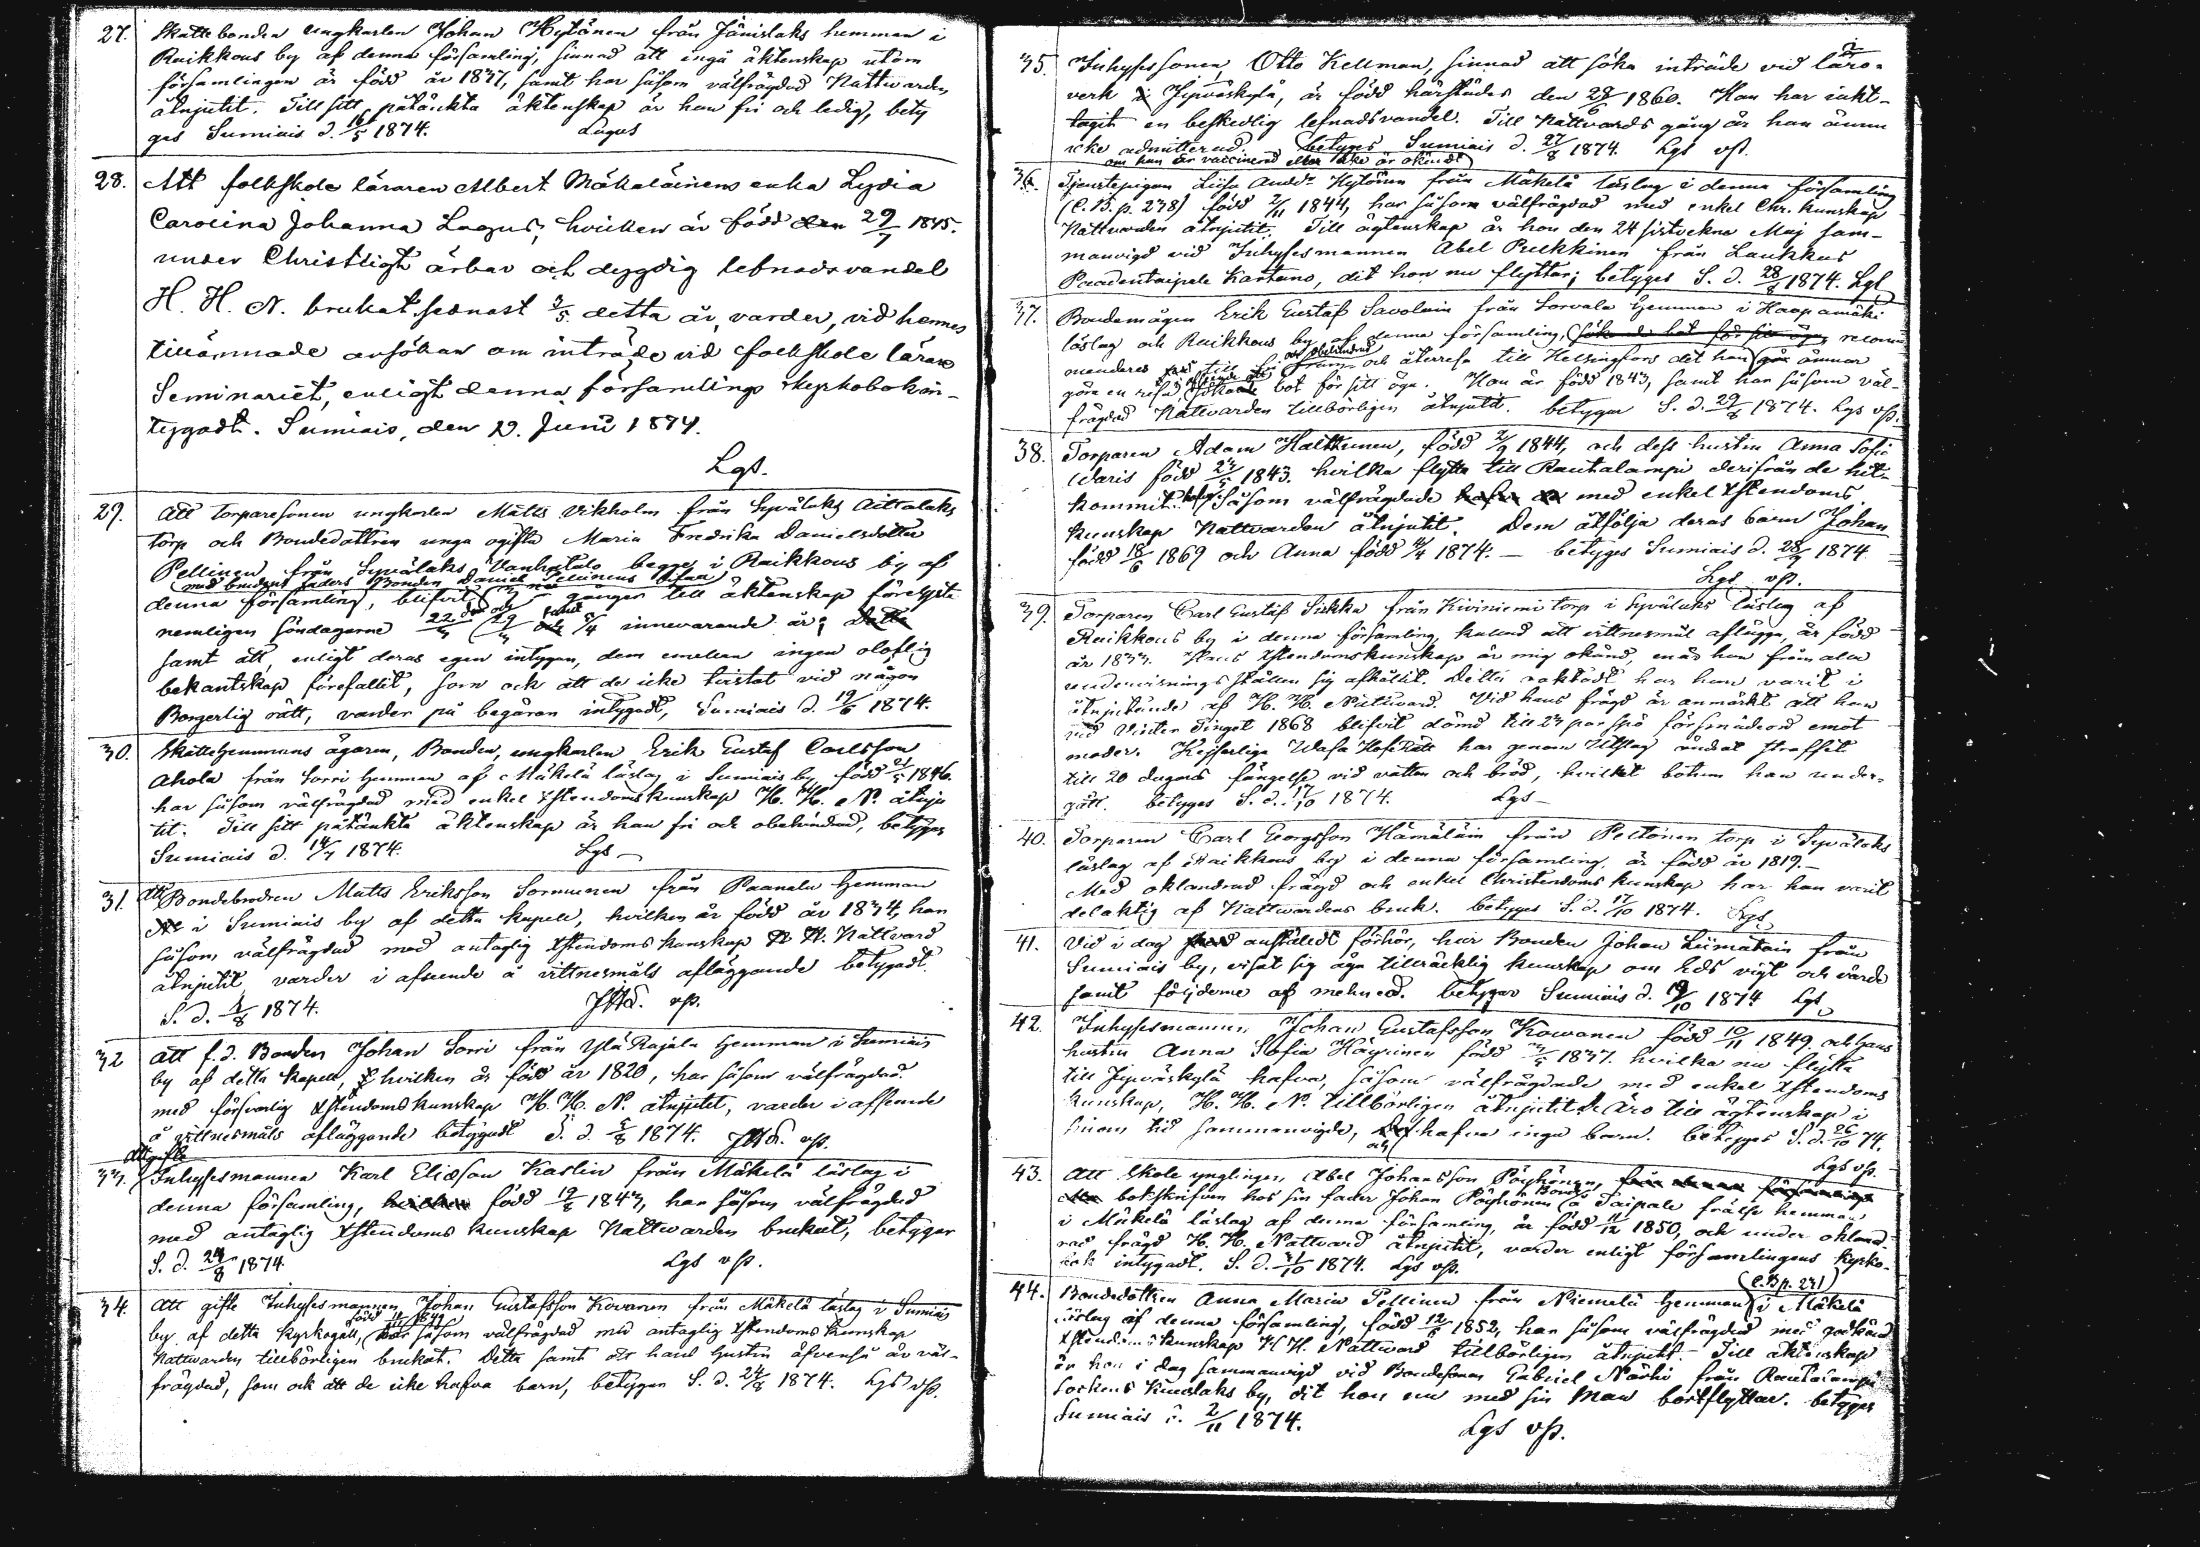 27. Skattebonden ungkarlen Johan Hytönen från Jänislaks hemman i
Raikkous by af denna församling, sinnad att ingå äktenskap utom
församlingen är född år 1837, samt har såsom välfrägdad Nattvarden
åtnjutit. Till sitt påtänkta äktenskap är han fri och ledig, bety
ges Sumiais d. 16/5 1874. Lagus
28. Att folkskole läraren Albert Mäkeläinens enka Lydia
Carolina Johanna Lagus, hvilken är född den 29/7 1845.
under Christligt ärbar och dygdig lefnadsvandel
H. H. N. brukat senast 3/5 detta år, varder, vid hennes
tillämnade ansökan om inträde vid folkskole lärare
Seminariet, enligt denna församlings kyrkobok in-
tygadt. Sumiais, den 19. Juni 1874.
Lgs.
29. Att torparesonen ungkarlen Matts Vikholm från Syväluks Aittalaks
torp och Bondedottren unga ogifta Maria Fredrika Danielsdotter
Pellinen från Syväluks Vanhatalo begge i Raikkous by af
med brudens faders Bonden Daniel Pellinens
denna församling, blifvit gånger till äktenskap förelysta
nemligen söndagarne 22 29 och 5/4 innevarande år; Detta
samt att, enligt deras egen intygan, dem emellan ingen oloflig
bekantskap förefallit, som ock att de icke tvistat vid någon
Borgerlig rätt, varder på begäran intygadt, Sumiais d. 19/6 1874.
30. Skattehemmans ägaren, Bonden, ungkarlen Erik Gustaf Carlsson
Ahola från Sorri hemman af Mäkelä läslag i Sumiais by, född 21/5 1846.
har såsom välfrägdad med enkel Xstendomskunskap H. H. N. åtnju
tit. Till sitt påtänkta äktenskap är han fri och obehindrad, betyges
Sumiais d. 14/7 1874. Lgs
31. Att Bondebrodren Matts Eriksson Sormunen från Paanala hemman
i Sumiais by af detta kapell, hvilken är född år 1834, han
såsom välfrägdad med antaglig Xstendoms kunskap H. H. Nattvard
åtnjutit varder i afseende å vittnesmåls afläggande betygadt.
S. d. 4/8 1874. vp.
32 Att f.d. Bonden Johan Sorri från Ylä Rajala hemman i Sumiais
by af detta Kapell, hvilken är född år 1820, har såsom välfrägdad
med försvarlig Xstendomskunskap H. H. N. åtnjutit, varder i afseende
å vittnesmåls afläggande betygadt S. d. 5/8 1874. vp.
Att gifte
33. Inhysesmannen Karl Eliasson Kastin från Mäkelä läslag i
denna församling, hvilken född 19/2 1843, har såsom välfrägdad
med antaglig Xstendoms kunskap Nattvarden brukat, betygar
S. d. 24/8 1874 Lgs vp.
34. Att gifte Inhysesmannen Johan Gustafsson Kovanen från Mäkelä läslag i Sumiais
by af detta kyrkogäll, har såsom välfrägdad med antaglig Xstendoms Kunskap
Nattvarden tillbörligen brukat. Detta samt att hans hustru äfvenså är väl-
frägdad, som ock att de icke hafva barn, betygar S. d. 24/8 1874. Lgs vp.
35. Inhysessonen Otto Kellman, sinnad att söka inträde vid läro-
verk i Jyväskylä, är född härstädes den 28/6 1860. Han har iakt-
tagit en beskedlig lefnadsvandel. Till Nattvards gång är han ännu
icke admitterad. betyges Sumiais d. 27/8 1874. Lgs vp.
om han är vaccinerad eller icke är okändt
36. Tjenstepigan Liisa Andr. Hytönen från Mäkelä läslag i denna församling
(C.B. p. 238) född 2/11 1844, har såsom välfrägdad med enkel Chr. kunskap
Nattvarden åtnjutit. Till ägtenskap är hon den 24 sistvekne Maj sam-
manvigd vid Inhysesmannen Abel Pulkkinen från Laukkas
Paadentaipale Kartano, dit hon nu flyttar; betyges S. d. 28/8 1874. Lgs
37. Bondemågen Erik Gustaf Savolain från Sorvala hemman i Haapamäki
läslag och Raikkous by af denna församling, recom
menderas till fri och obehindrad fram- och återresa till Helsingfors dit han ämnar
göra en resa, bot för sitt öga. Han är född 1843, samt har såsom väl-
frägdad Nattvarden tillbörligen åtnjutit. betygar S. d. 29/8 1874. Lgs vp.
38. Torparen Adam Halttunen, född 2/9 1844, och dess hustru Anna Sofia
Waris född 24/5 1843. hvilka flytta till Rautalampi derifrån de hit-
kommit. hafva såsom välfrägdade med enkel Xstendoms
kunskap Nattvarden åtnjutit. Dem åtfölja deras barn Johan
född 18/6 1869 och Anna född 4/4 1874. — betyges Sumiais d. 28/9 1874
Lgs vp.
39. Torparen Carl Gustaf Sikka från Kiviniemi torp i Syväluks läslag af
Raikkous by i denna församling, kallad att vittnesmål aflägga, är född
år 1833. Hans Xstendomskunskap är mig okänd, enär han från alla
undervisnings ställen sig afhållit. Detta oaktadt har han varit i
åtnjutande af H. H. Nattvard. Vid hans frägd är anmärkt att han
vid Vinter Tinget 1868 blifvit dömd till 23 par spö för smädeord emot
moder. Kejserliga Wasa Hof Rätt har genom Utslag ändrat straffet
till 20 dagars fängelse vid vatten och bröd, hvilket botum han under-
gått. betyges S. d. 17/10 1874. Lgs
40. Torparen Carl Georgsson Hämäläin från Peltonen torp i Syväluks
läslag af Raikkous by i denna församling, är född år 1819.—
Med oklandrad frägd och enkel Christendoms kunskap har han varit
delaktig af Nattvardens bruk. betyges S. d. 17/10 1874. Lgs
41. Vid i dag anstäldt förhör, har Bonden Johan Liimatain från
Sumiais by, visat sig äga tillräcklig kunskap om Eds vigt och värde
samt följderne af mehned. betygar Sumiais d. 19/10 1874 Lgs
42. Inhysesmannen Johan Gustafsson Kowanen född 10/11 1849, och hans
hustru Anna Sofia Häyrinen född 1837. hvilka nu flytta
till Jyväskylä hafva, såsom välfrägdade med enkel Xstendoms
kunskap, H. H. N. tillbörligen åtnjutit. De äro till ägtenskap i
sinom tid sammanvigde, och hafva inga barn. betyges S. d. 26/10 74.
Lgs vp.
43. Att Skole ynglingen Abel Johansson Pöyhönen, från denna församling
bokskrifven hos sin fader Johan Pöyhönen å Taipale frälse hemman
i Mäkelä läslag af denna församling, är född 11/12 1850, och under okland-
rad frägd H. H. Nattvard åtnjutit, varder enligt församlingens kyrko-
bok intygadt. S. d. 31/10 1874. Lgs vp.
(C.B.p. 231)
44. Bondedottren Anna Maria Pellinen från Niemelä hemman i Mäkelä
läslag af denna församling, född 12/5 1852, har såsom välfrägdad med godkänd
Xstendomskunskap H H. Nattvard tillbörligen åtnjutit. Till äktenskap
är hon i dag sammanvigd vid Bondesonen Gabriel Närhi från Rautalampi
Sockens Kuuslaks by, dit hon nu med sin Man bortflyttar. betyges
Sumiais d. 2/11 1874. Lgs vp.